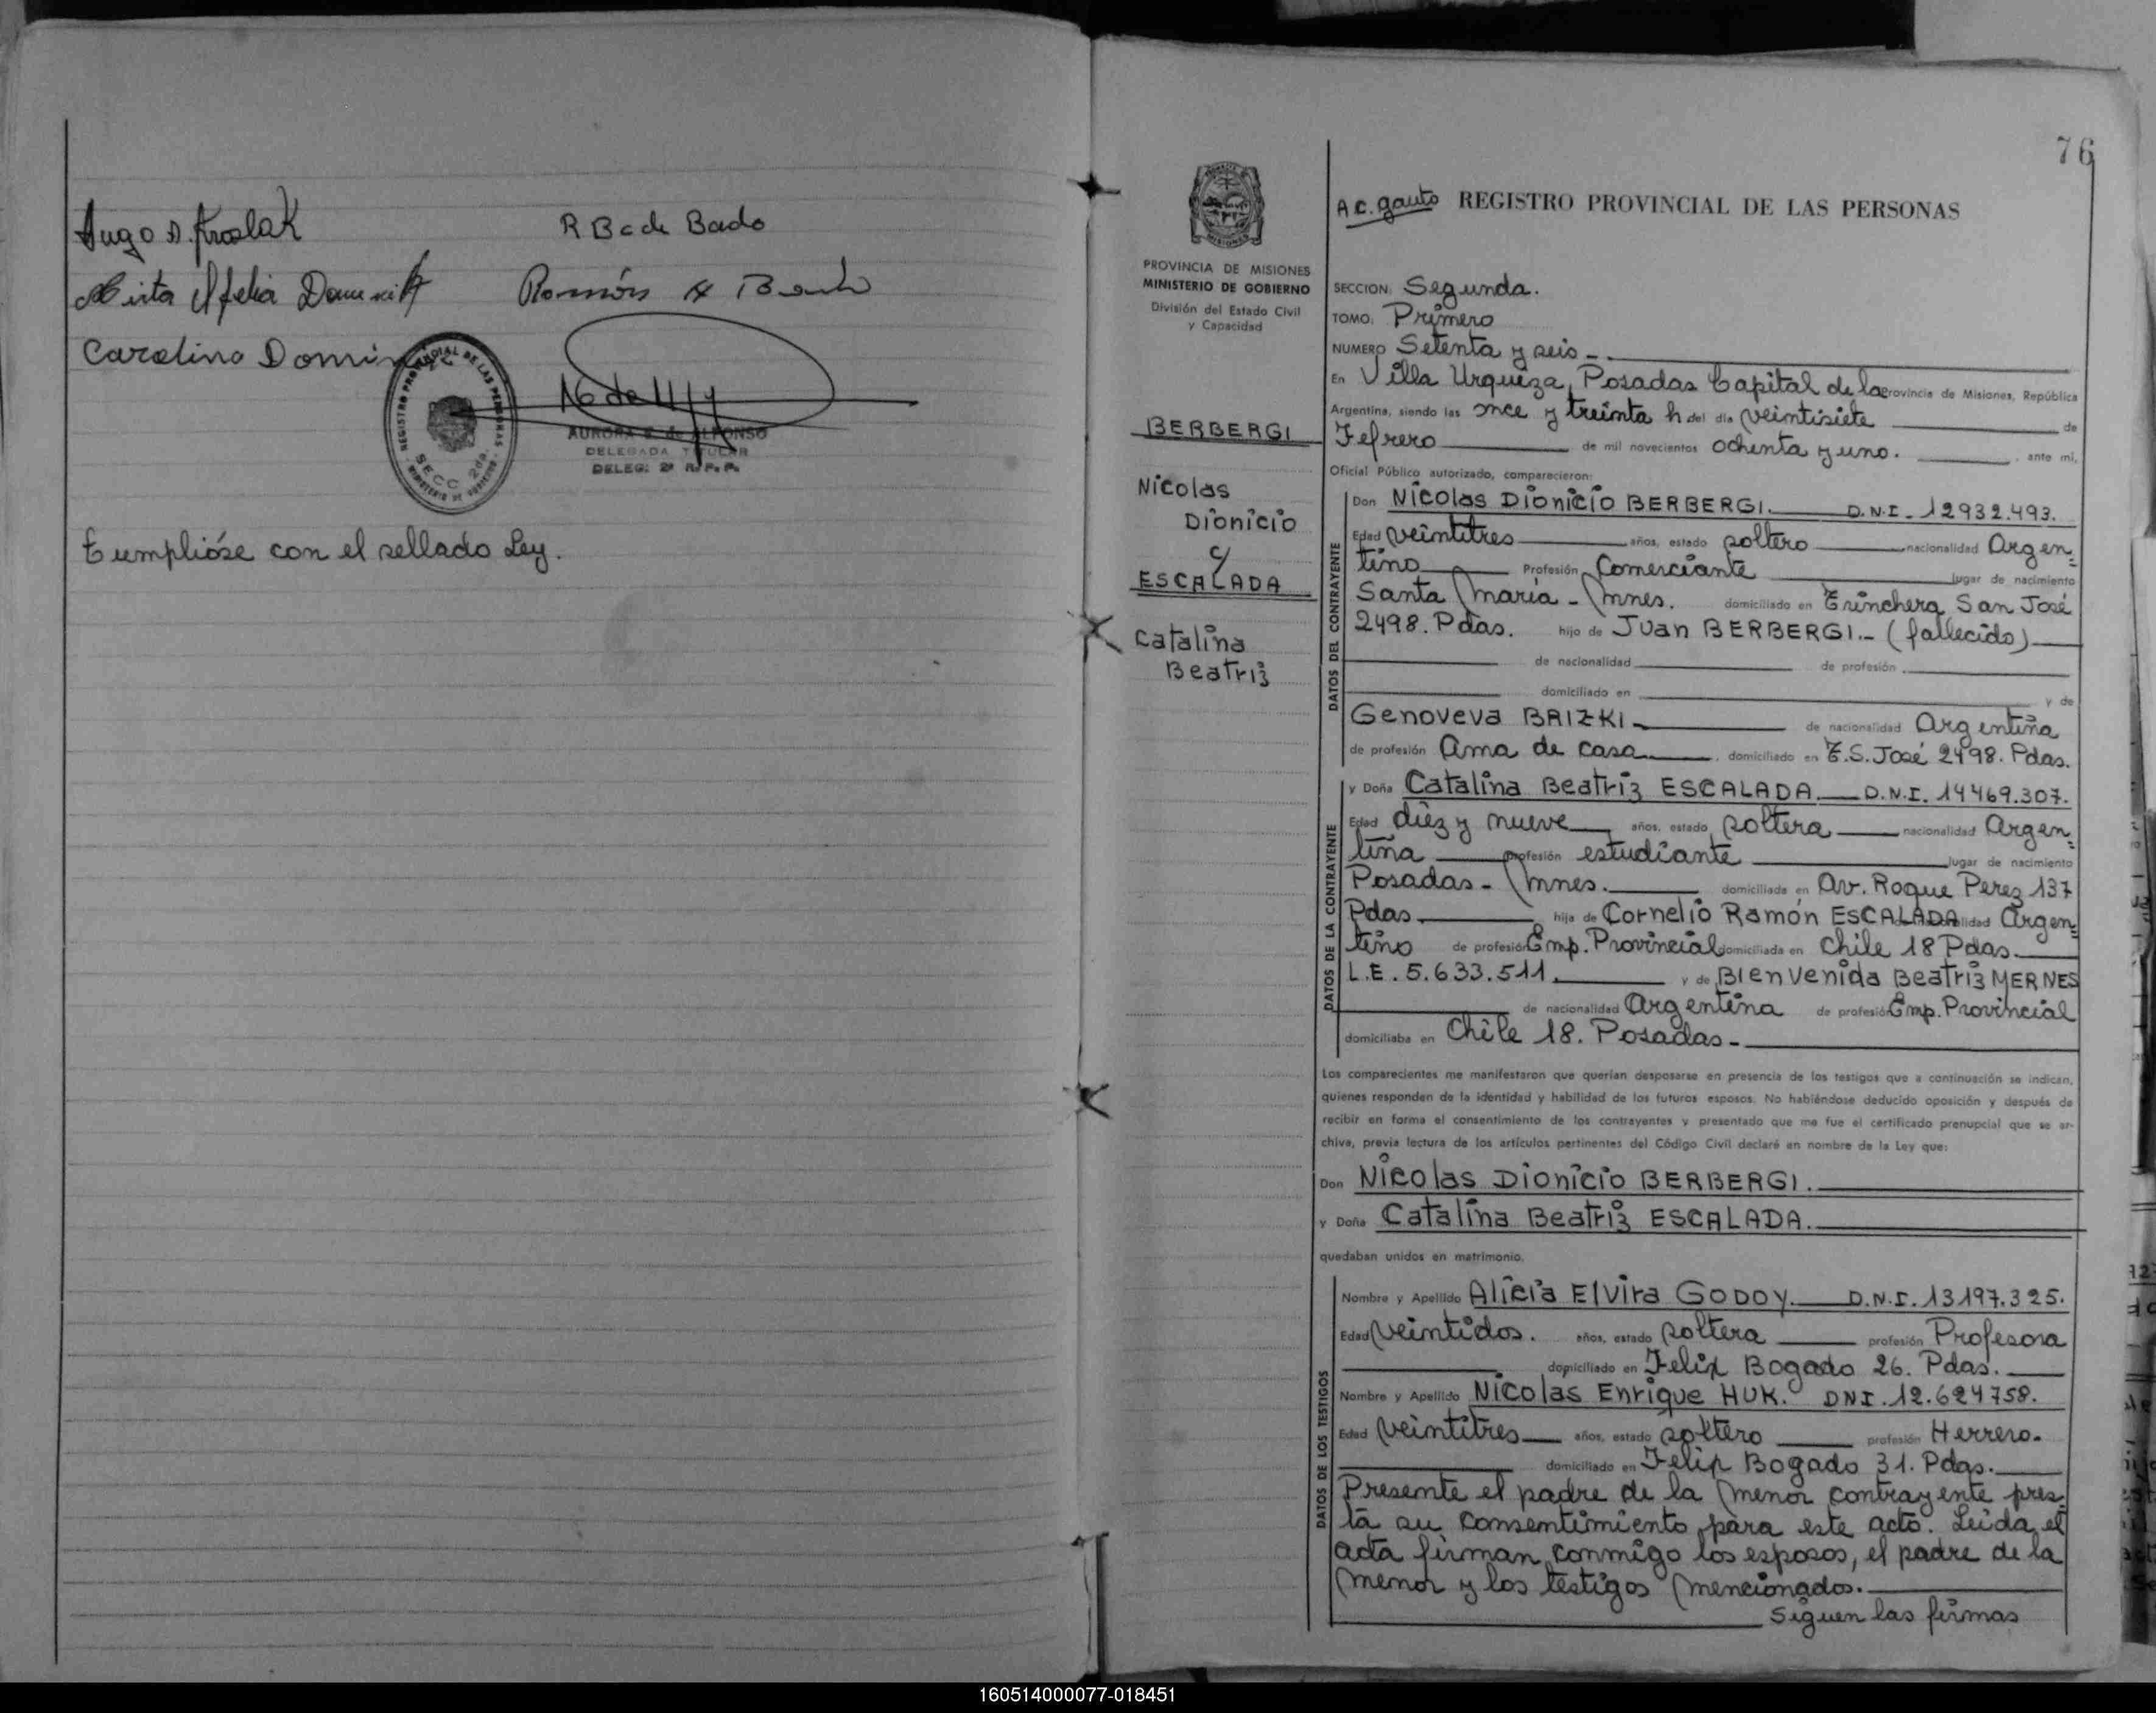 Hugo D. Kroslak
R B de Bado
Mirta Ofelia
Ramón
Carolino
REGISTRO PROVINCIAL DE LAS PERSONAS
SECC 2da.
AURORA de ALFONSO
DELEGADA TITULAR
DELEG: 2ª R. P. P.
Cumplióse con el sellado Ley.
76
A c. gauto REGISTRO PROVINCIAL DE LAS PERSONAS
PROVINCIA DE MISIONES
MINISTERIO DE GOBIERNO
División del Estado Civil
y Capacidad
BERBERGI
Nicolas
Dionicio
c/
ESCALADA
Catalina
Beatriz
SECCION: Segunda.
TOMO: Primero
NUMERO Setenta y seis -
En Villa Urquiza, Posadas Capital de la Provincia de Misiones, República
Argentina, siendo las once y treinta h del día veintisiete de
Febrero de mil novecientos ochenta y uno. ante mi,
Oficial Público autorizado, comparecieron:
DATOS DEL CONTRAYENTE
Don Nicolas Dionicio BERBERGI. D.N.I. 12932.493.
Edad veintitres años, estado soltero nacionalidad Argen=
tino Profesión Comerciante lugar de nacimiento
Santa María - Mnes. domiciliado en Trinchera San José
2498. Pdas. hijo de Juan BERBERGI.- (fallecido)
de nacionalidad de profesión
domiciliado en y de
Genoveva BRIZKI - de nacionalidad Argentina
de profesión Ama de casa domiciliado en T.S. José 2498. Pdas.
DATOS DE LA CONTRAYENTE
y Doña Catalina Beatriz ESCALADA. D.N.I. 14469.307.
Edad diez y nueve años, estado soltera nacionalidad Argen=
tina profesión estudiante lugar de nacimiento
Posadas - Mnes. domiciliada en Av. Roque Perez 137
Pdas. hija de Cornelio Ramón ESCALADA nacionalidad Argen=
tino de profesión Emp. Provincial domiciliada en Chile 18 Pdas.
L.E. 5.633.511. y de Bienvenida Beatriz MERNES
de nacionalidad Argentina de profesión Emp. Provincial
domiciliaba en Chile 18. Posadas -
Los comparecientes me manifestaron que querían desposarse en presencia de los testigos que a continuación se indican,
quienes responden de la identidad y habilidad de los futuros esposos. No habiéndose deducido oposición y después de
recibir en forma el consentimiento de los contrayentes y presentado que me fue el certificado prenupcial que se ar-
chiva, previa lectura de los artículos pertinentes del Código Civil declaré en nombre de la Ley que:
Don Nicolas Dionicio BERBERGI.
y Doña Catalina Beatriz ESCALADA.
quedaban unidos en matrimonio.
DATOS DE LOS TESTIGOS
Nombre y Apellido Alicia Elvira GODOY. D.N.I. 13197.325.
Edad veintidos. años, estado soltera profesión Profesora
domiciliado en Felix Bogado 26. Pdas.
Nombre y Apellido Nicolas Enrique HUK. DNI. 12.624758.
Edad veintitres años, estado soltero profesión Herrero.
domiciliado en Felix Bogado 31. Pdas.
Presente el padre de la menor contrayente pres=
ta su consentimiento para este acto. Leída el
acta firman conmigo los esposos, el padre de la
menor y los testigos mencionados.
Siguen las firmas
160514000077-018451